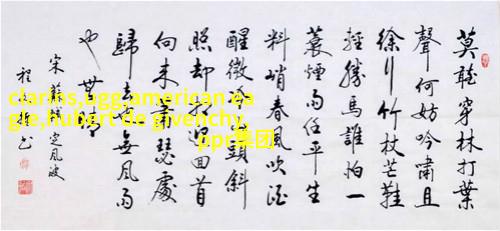 莫聽穿林打葉
聲何妨吟嘯且
徐行竹杖芒鞋
輕勝馬誰怕一
蓑煙雨任平生
料峭春風吹酒
醒微冷山頭斜
照却相迎回首
向来蕭瑟處
歸去也無風雨
也無晴
宋蘇軾定風波
clarins,ugg,american ea
gle,hubert de givenchy,
ppr集团